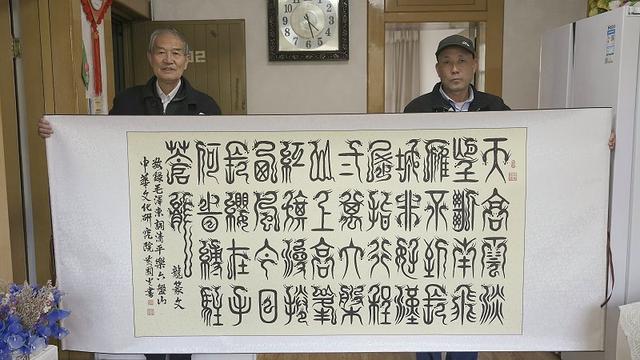 天高雲淡
望斷南飛
雁不到長
城非好漢
屈指行程
二萬六盤
山上高峰
紅旗漫捲
西風今日
長纓在手
何時縛住
蒼龍
龍篆文
敬錄毛澤東詞清平樂六盤山
中華文化研究院